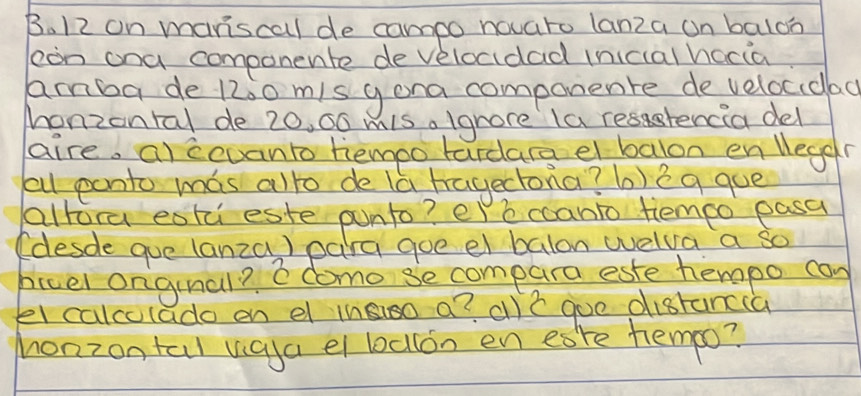 3.12 Un mariscal de campo novato lanza un balón
con una componente de velocidad inicial hacia
arriba de 12.0 m/s y una componente de velocidad
horizontal de 20.00 m/s. Ignore la resistencia del
aire. a) ¿cuanto tiempo tardara el balon en llegar
al punto más alto de la trayectoria? b) ¿a que
altura está este punto? c) ¿cuanto tiempo pasa
(desde que lanza) para que el balon vuelva a so
nivel original? ¿como se compara este tiempo con
el calculado en el inciso a? d) ¿que distancia
horizontal viaja el balón en este tiempo?